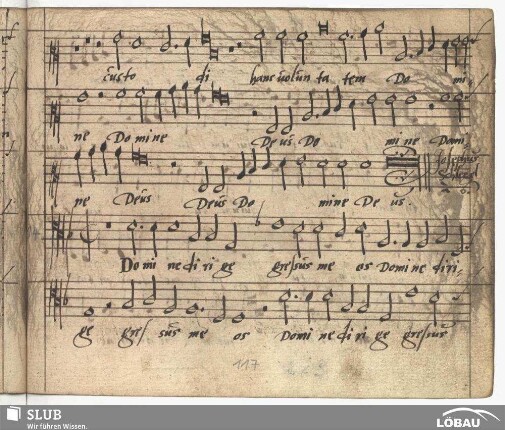 custo di hanc uolun ta tem Do mi,
ne Domine Deus Do mi ne Domi,
ne Deus Deus Do mine De us.
Domi ne di ri ge gressus me os Domi ne diri,
ge gres sus me os Domi ne di ri ge gressus
117
SLUB
Wir führen Wissen.
LÖBAU